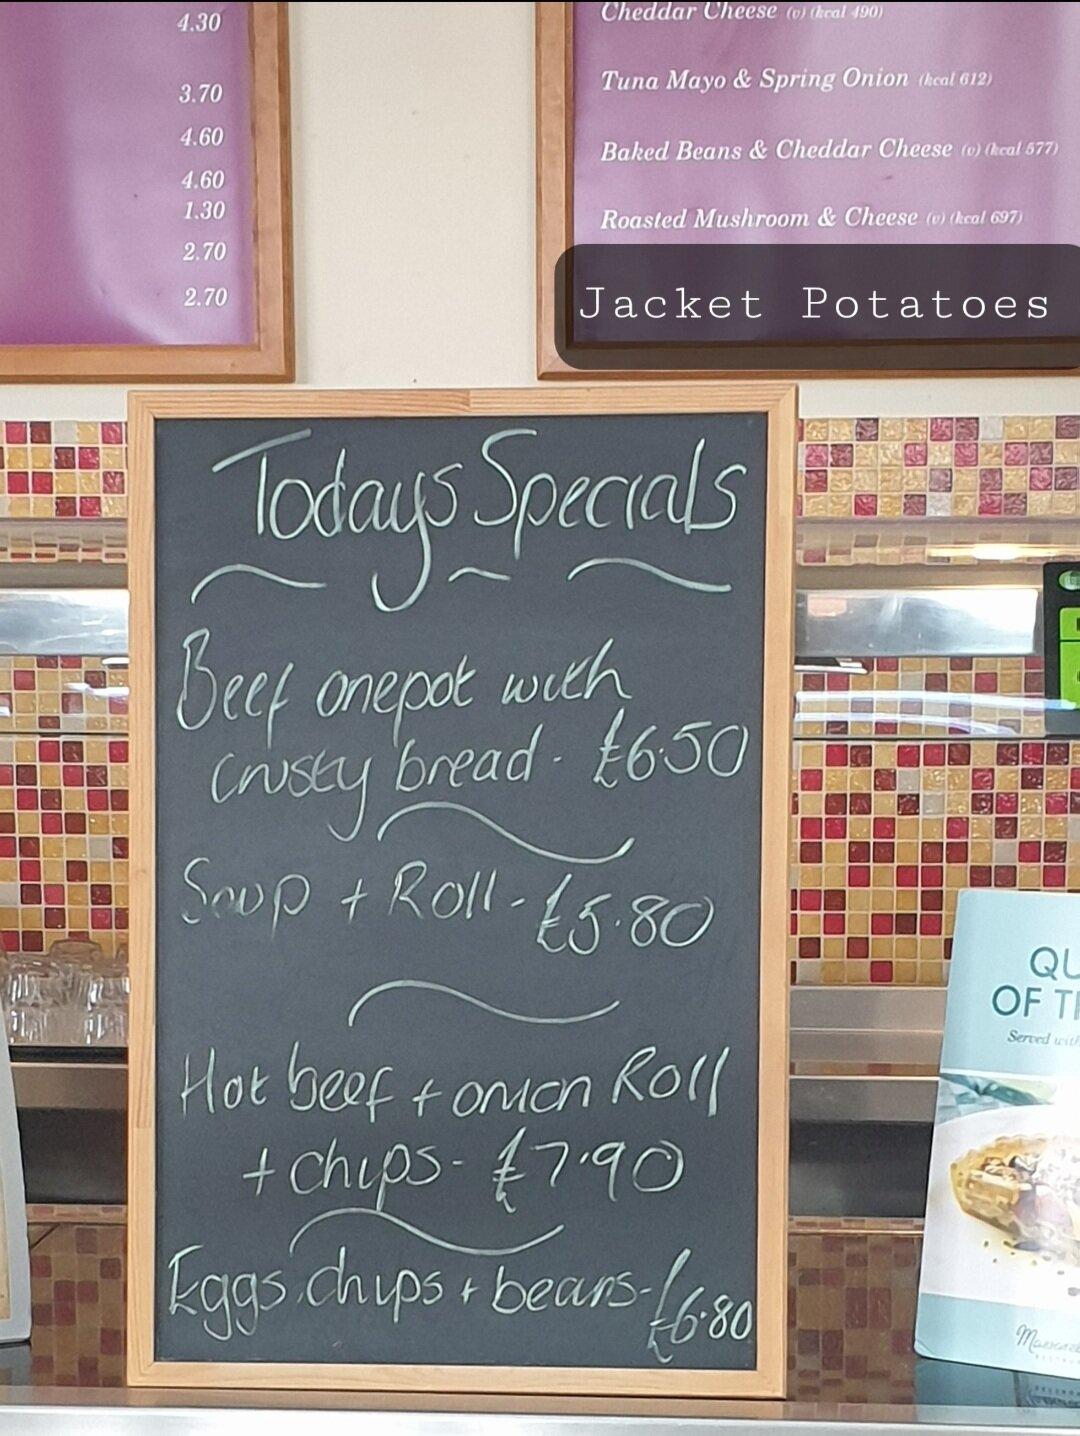 4.30
3.70
4.60
4.60
1.30
2.70
2.70
Cheddar Cheese (v) (kcal 490)
Tuna Mayo & Spring Onion (kcal 612)
Baked Beans & Cheddar Cheese (v) (kcal 577)
Roasted Mushroom & Cheese (v) (kcal 697)
Jacket Potatoes
Todays Specials
Beef onepot with
crusty bread - £6.50
Soup + Roll - £5.80
Hot beef + onion Roll
+ chips - £7.90
Eggs, chips + beans - £6.80
QU
OF T
Served with